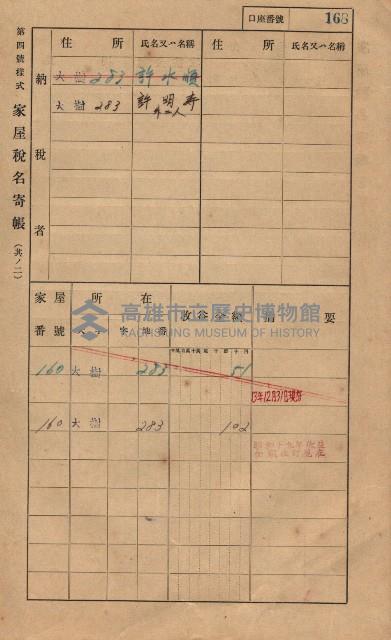 口座番號 168
第四號樣式 家屋稅名寄帳 (其ノ二)
納稅者
住所 氏名又ハ名稱 住所 氏名又ハ名稱
大樹 283 許水順
大樹 283 許明壽
外二人
家屋番號 所在 收谷金額 摘要
大字 字 地番
160 大樹 283 51
13年12月31日現在
160 大樹 283 102
高雄市立歷史博物館
KAOHSIUNG MUSEUM OF HISTORY